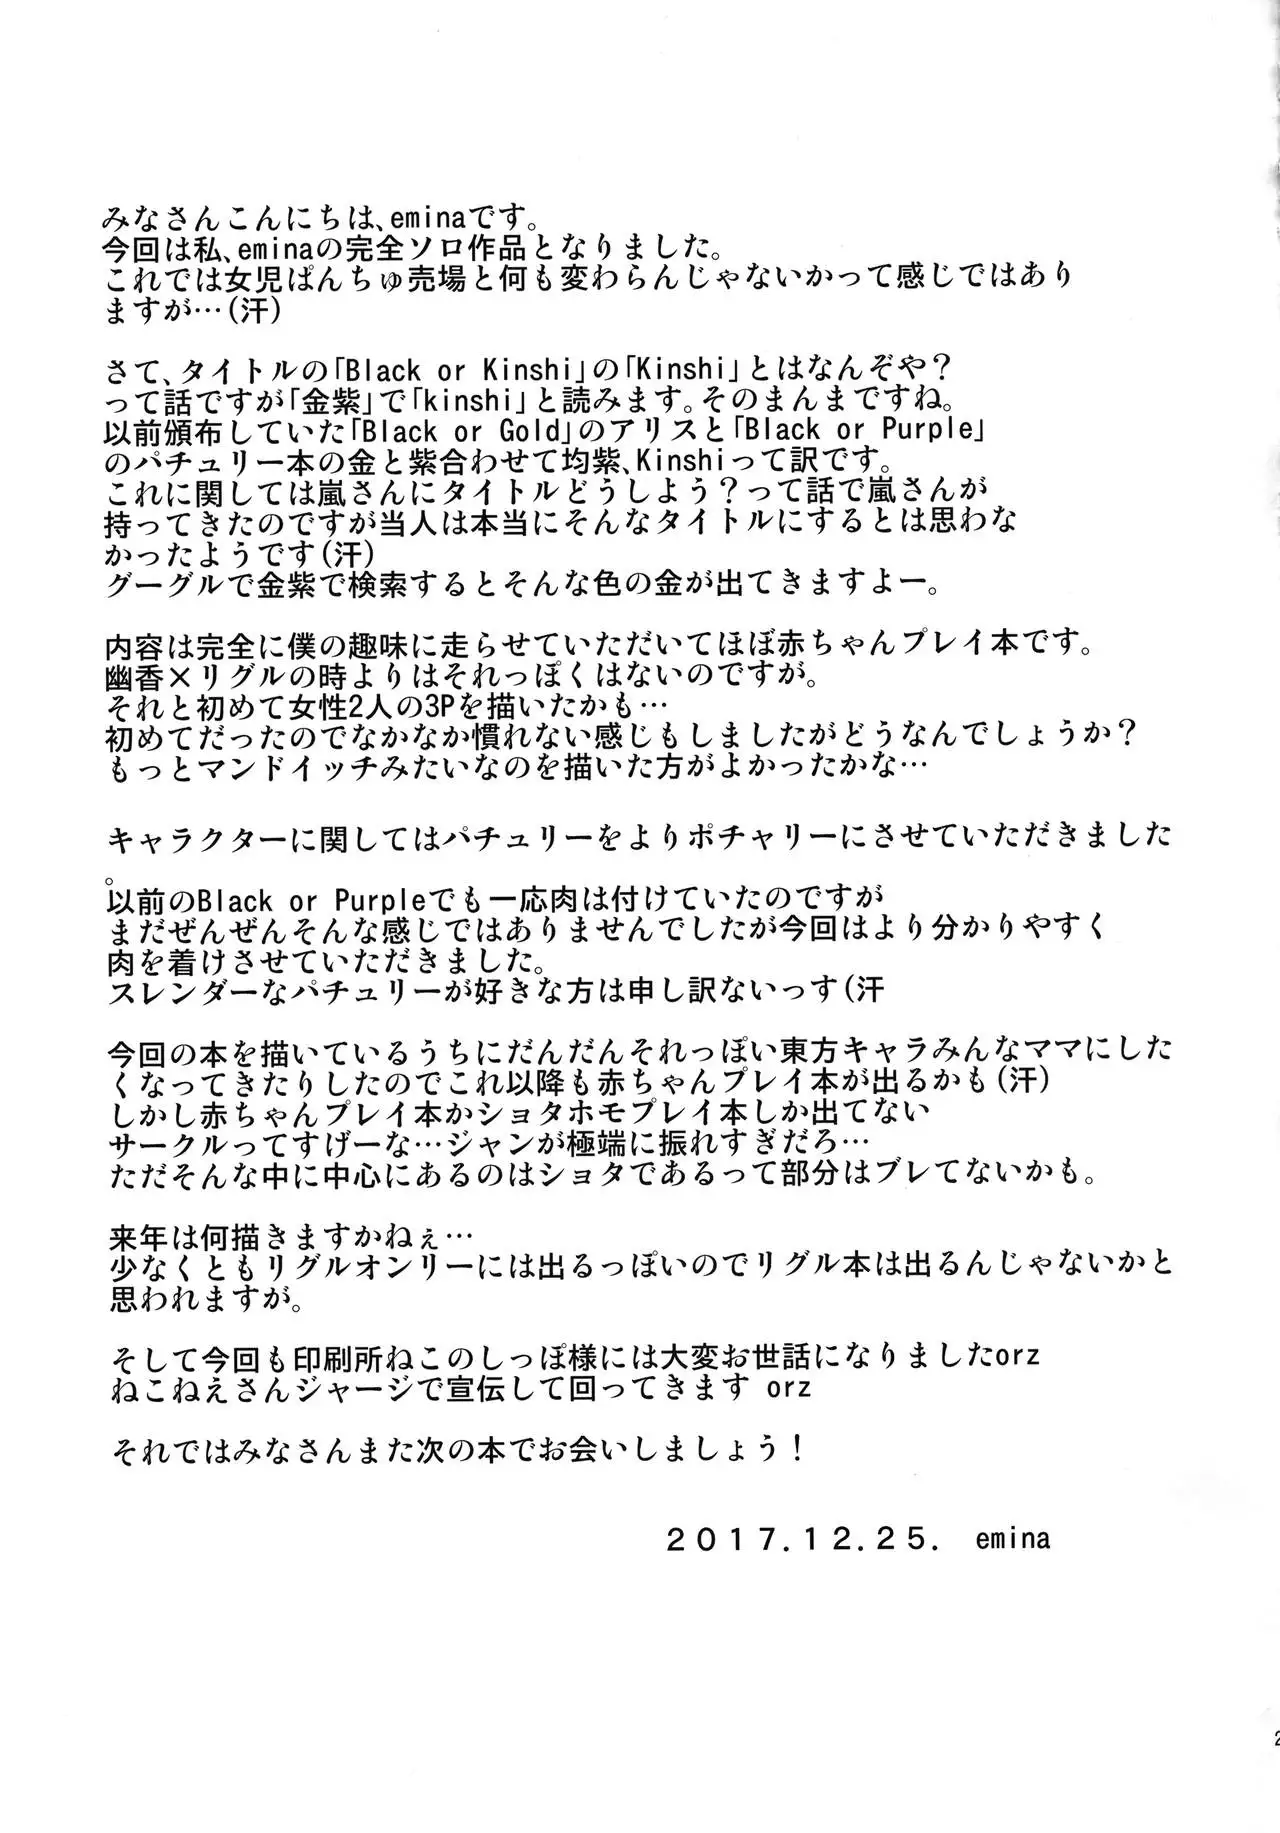 みなさんこんにちは、eminaです。
今回は私、eminaの完全ソロ作品となりました。
これでは女児ぱんちゅ売場と何も変わらんじゃないかって感じではあり
ますが…(汗)
さて、タイトルの「Black or Kinshi」の「Kinshi」とはなんぞや？
って話ですが「金紫」で「kinshi」と読みます。そのまんまですね。
以前頒布していた「Black or Gold」のアリスと「Black or Purple」
のパチュリー本の金と紫合わせて均紫、Kinshiって訳です。
これに関しては嵐さんにタイトルどうしよう？って話で嵐さんが
持ってきたのですが当人は本当にそんなタイトルにするとは思わな
かったようです(汗)
グーグルで金紫で検索するとそんな色の金が出てきますよー。
内容は完全に僕の趣味に走らせていただいてほぼ赤ちゃんプレイ本です。
幽香×リグルの時よりはそれっぽくはないのですが。
それと初めて女性2人の3Pを描いたかも…
初めてだったのでなかなか慣れない感じもしましたがどうなんでしょうか？
もっとマンドイッチみたいなのを描いた方がよかったかな…
キャラクターに関してはパチュリーをよりポチャリーにさせていただきました
。
以前のBlack or Purpleでも一応肉は付けていたのですが
まだぜんぜんそんな感じではありませんでしたが今回はより分かりやすく
肉を着けさせていただきました。
スレンダーなパチュリーが好きな方は申し訳ないっす(汗
今回の本を描いているうちにだんだんそれっぽい東方キャラみんなママにした
くなってきたりしたのでこれ以降も赤ちゃんプレイ本が出るかも(汗)
しかし赤ちゃんプレイ本かショタホモプレイ本しか出てない
サークルってすげーな…ジャンが極端に振れすぎだろ…
ただそんな中に中心にあるのはショタであるって部分はブレてないかも。
来年は何描きますかねぇ…
少なくともリグルオンリーには出るっぽいのでリグル本は出るんじゃないかと
思われますが。
そして今回も印刷所ねこのしっぽ様には大変お世話になりましたorz
ねこねえさんジャージで宣伝して回ってきます orz
それではみなさんまた次の本でお会いしましょう！
２０１７.１２.２５. emina